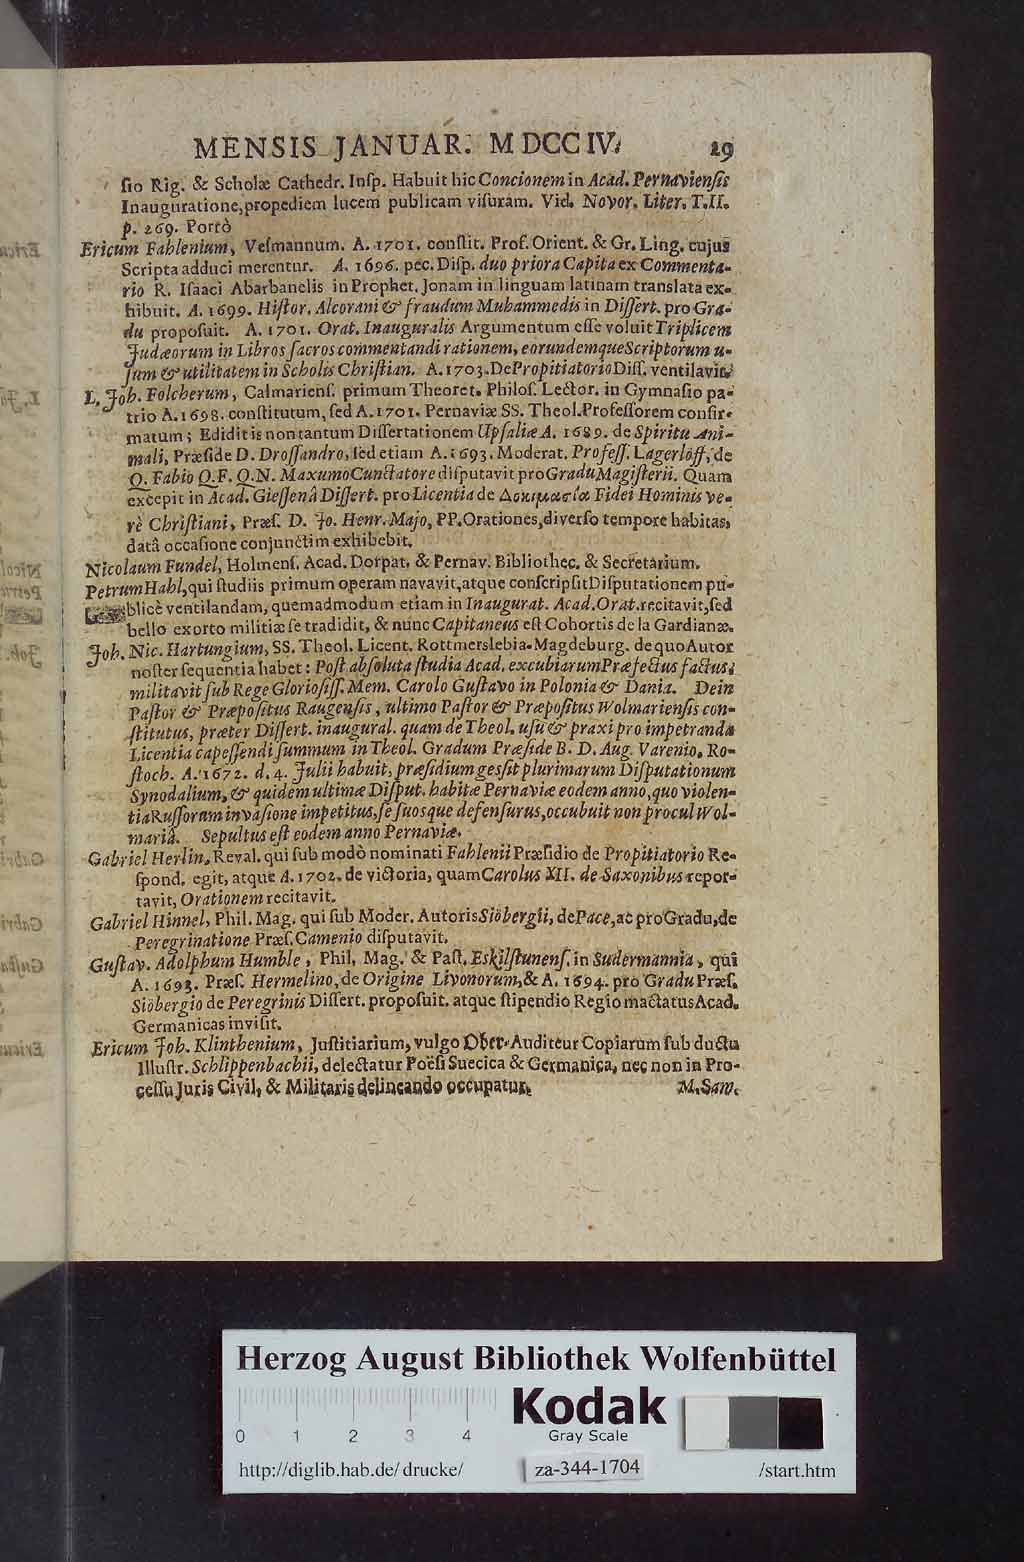 MENSIS JANUAR. M DCC IV. 29
ſio Rig. & Scholæ Cathedr. Inſp. Habuit hic Concionem in Acad. Pernavienſis
Inauguratione, propediem lucem publicam viſuram. Vid. Novor. Liter. T. II.
p. 269. Portò
Ericum Fahlenium, Veſmannum. A. 1701. conſtit. Prof. Orient. & Gr. Ling. cujus
Scripta adduci merentur. A. 1696. pec. Diſp. duo priora Capita ex Commenta-
rio R. Iſaaci Abarbanelis in Prophet. Jonam in linguam latinam translata ex-
hibuit. A. 1699. Hiſtor. Alcorani & fraudum Muhammedis in Diſſert. pro Gra-
du propoſuit. A. 1701. Orat. Inauguralis Argumentum eſſe voluit Triplicem
Judæorum in Libros ſacros commentandi rationem, eorundemque Scriptorum u-
ſum & utilitatem in Scholis Chriſtian. A. 1703. De Propitiatorio Diſſ. ventilavit.
L. Joh. Folcherum, Calmarienſ. primum Theoret. Philoſ. Lector. in Gymnaſio pa-
trio A. 1698. conſtitutum, ſed A. 1701. Pernaviæ SS. Theol. Profeſſorem confir-
matum; Edidit is non tantum Diſſertationem Upſaliæ A. 1689. de Spiritu Ani-
mali, Præſide D. Droſſandro, ſed etiam A. 1693. Moderat. Profeſſ. Lagerlöff, de
Q. Fabio Q. F. Q. N. Maxumo Cunctatore diſputavit pro Gradu Magiſterii. Quam
excepit in Acad. Gieſſenâ Diſſert. pro Licentia de Δοκιμασία Fidei Hominis ve-
rè Chriſtiani, Præſ. D. Jo. Henr. Majo, PP. Orationes, diverſo tempore habitas,
datâ occaſione conjunctim exhibebit.
Nicolaum Fundel, Holmenſ. Acad. Dorpat. & Pernav. Bibliothec. & Secretarium.
Petrum Hahl, qui ſtudiis primum operam navavit, atque conſcripſit Diſputationem pu-
blicè ventilandam, quemadmodum etiam in Inaugurat. Acad. Orat. recitavit, ſed
bello exorto militiæ ſe tradidit, & nunc Capitaneus eſt Cohortis de la Gardianæ.
Joh. Nic. Hartungium, SS. Theol. Licent. Rottmerslebia-Magdeburg. de quo Autor
noſter ſequentia habet: Poſt abſoluta ſtudia Acad. excubiarum Præfectus factus,
militavit ſub Rege Glorioſiſſ. Mem. Carolo Guſtavo in Polonia & Dania. Dein
Paſtor & Præpoſitus Raugenſis, ultimo Paſtor & Præpoſitus Wolmarienſis con-
ſtitutus, præter Diſſert. inaugural. quam de Theol. uſu & praxi pro impetranda
Licentia capeſſendi ſummum in Theol. Gradum Præſide B. D. Aug. Varenio, Ro-
ſtoch. A. 1672. d. 4. Julii habuit, præſidium geſſit plurimarum Diſputationum
Synodalium, & quidem ultimæ Diſput. habitæ Pernaviæ eodem anno, quo violen-
tia Ruſſorum invaſione impetitus, ſe ſuosque defenſurus, occubuit non procul Wol-
mariâ. Sepultus eſt eodem anno Pernaviæ.
Gabriel Herlin, Reval. qui ſub modò nominati Fahlenii Præſidio de Propitiatorio Re-
ſpond. egit, atque A. 1702. de victoria, quam Carolus XII. de Saxonibus repor-
tavit, Orationem recitavit.
Gabriel Hinnel, Phil. Mag. qui ſub Moder. Autoris Siöbergii, de Pace, ac pro Gradu, de
Peregrinatione Præſ. Camenio diſputavit.
Guſtav. Adolphum Humble, Phil. Mag. & Paſt. Eskilſtunenſ. in Sudermannia, qui
A. 1693. Præſ. Hermelino, de Origine Livonorum, & A. 1694. pro Gradu Præſ.
Siöbergio de Peregrinis Diſſert. propoſuit. atque ſtipendio Regio mactatus Acad.
Germanicas inviſit.
Ericum Joh. Klinthenium, Juſtitiarium, vulgo Ober-Auditeur Copiarum ſub ductu
Illuſtr. Schlippenbachii, delectatur Poëſi Suecica & Germanica, nec non in Pro-
ceſſu Juris Civil. & Militaris delineando occupatur. M. Sam.
Herzog August Bibliothek Wolfenbüttel
Kodak
0 1 2 3 4 Gray Scale
http://diglib.hab.de/drucke/ za-344-1704 /start.htm